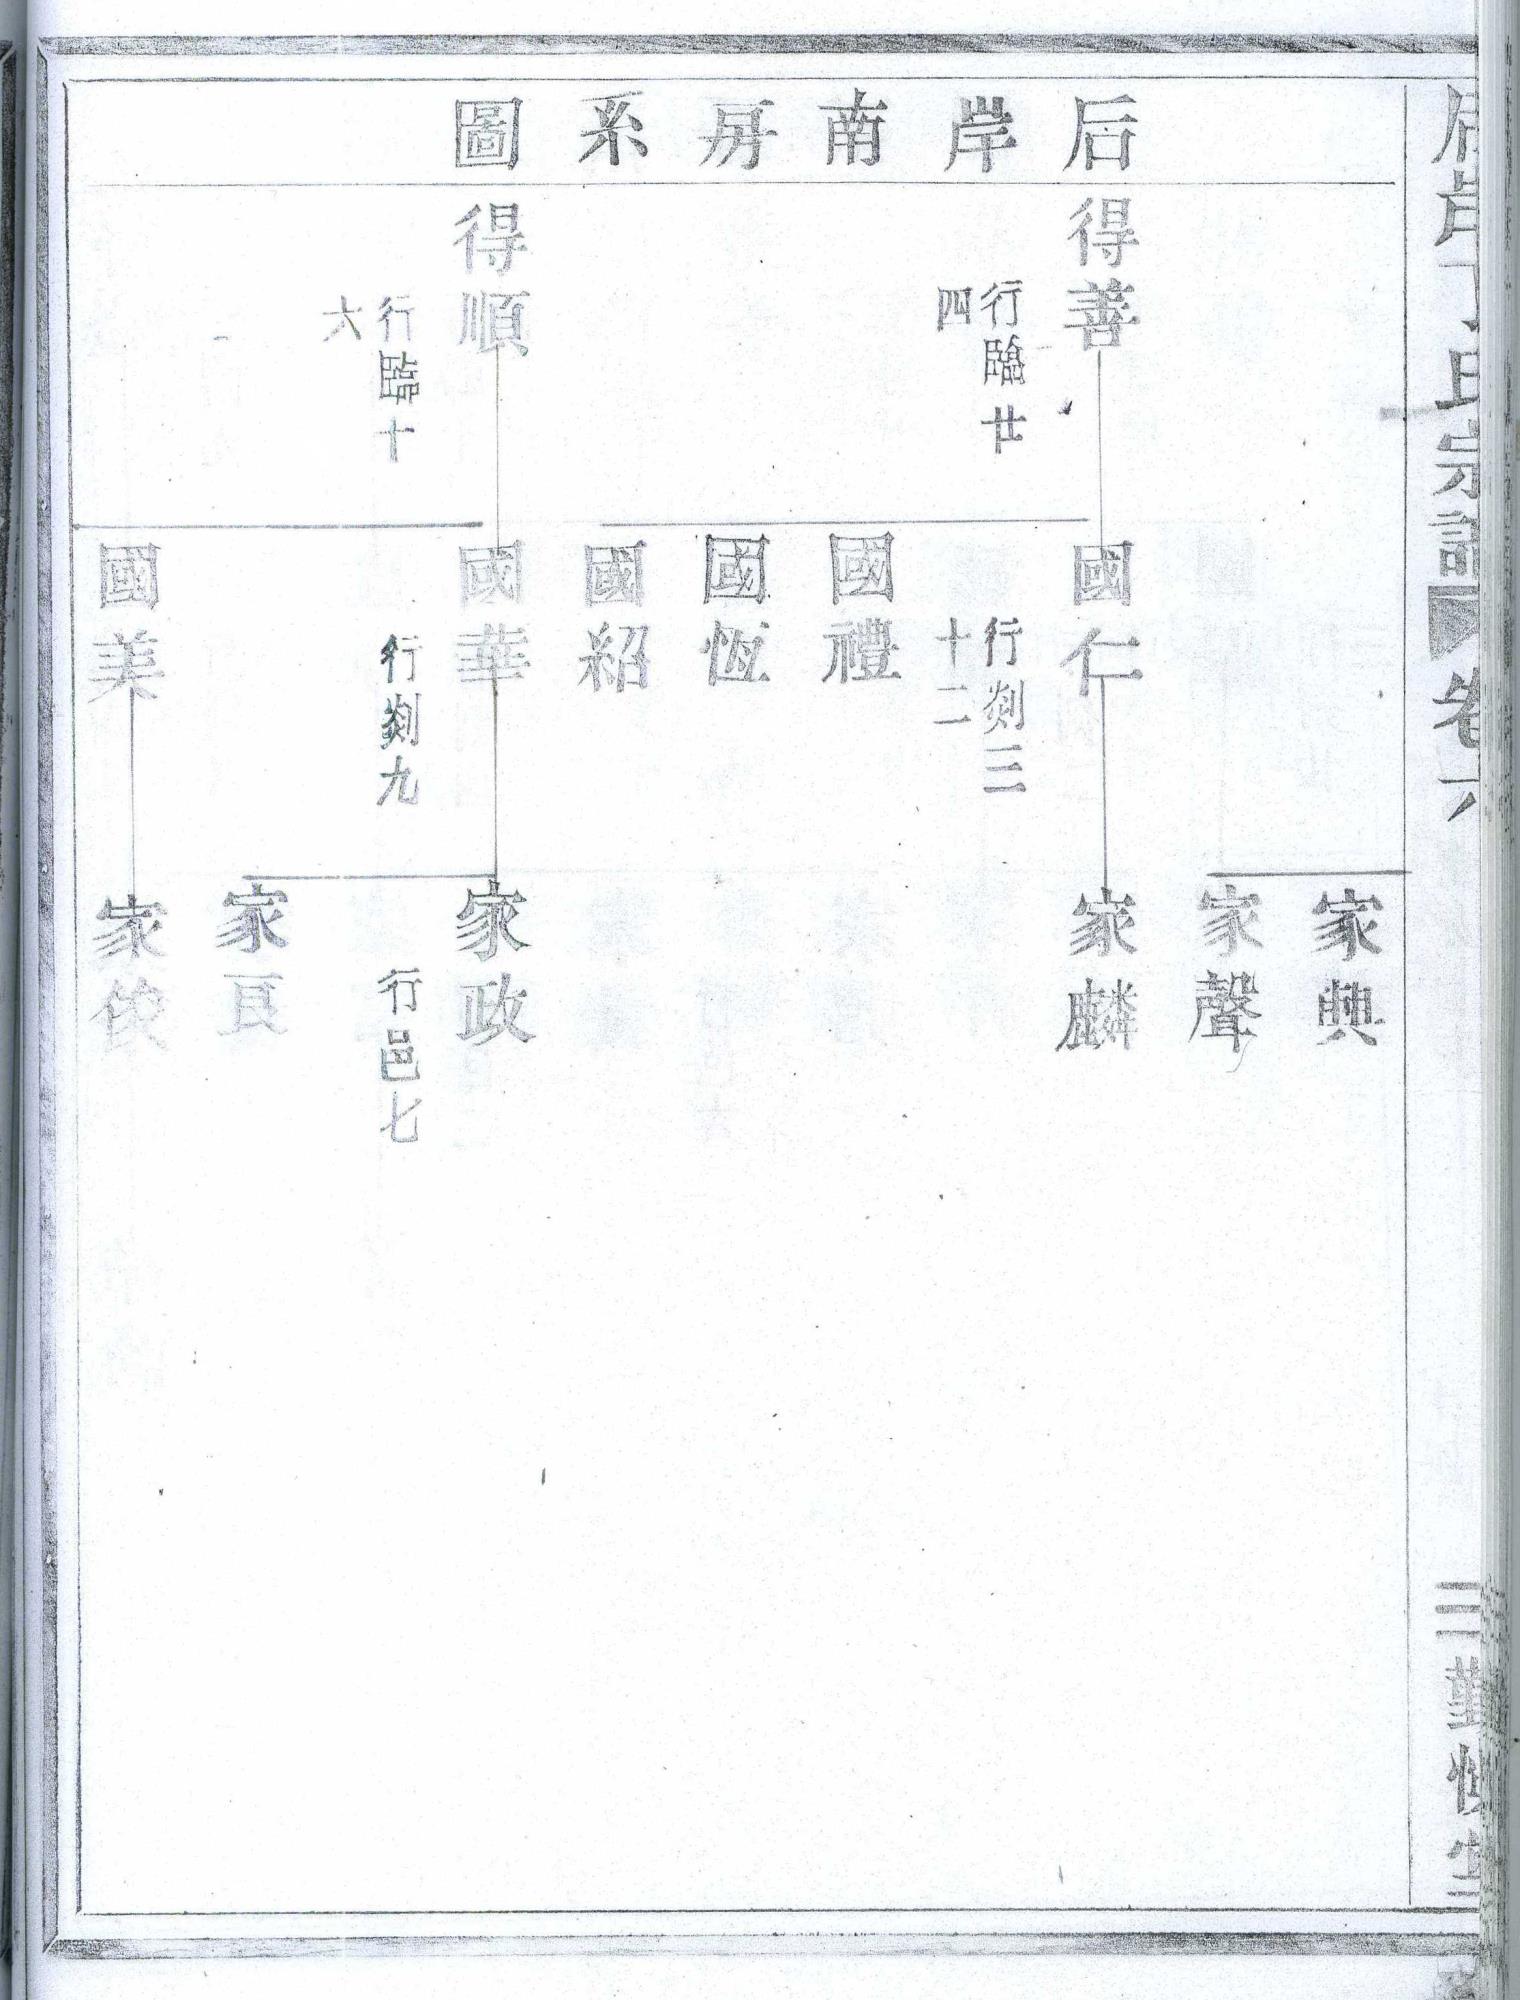 后岸南房系圖
得善
行臨廿
四
得順
行臨十
六
國仁
行剡三
十二
國禮
國恆
國紹
國華
行剡九
國美
家典
家聲
家麟
家政
行邑七
家良
家俊
氏宗譜
卷六
三